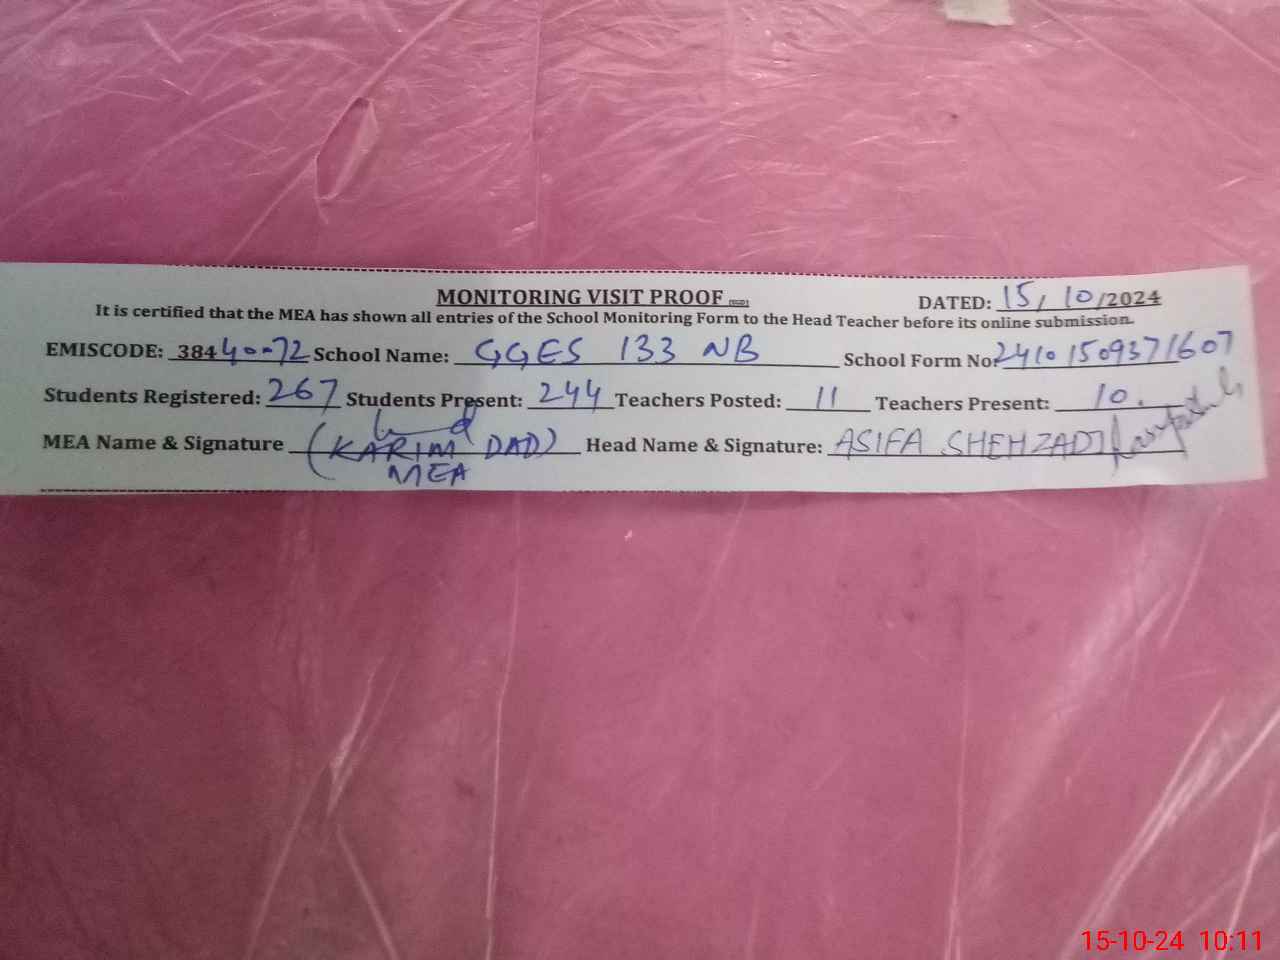 MONITORING VISIT PROOF
DATED: 15/10/2024
It is certified that the MEA has shown all entries of the School Monitoring Form to the Head Teacher before its online submission.
EMISCODE: 38440072 School Name: GGES 133 NB School Form No: 24101509371607
Students Registered: 267 Students Present: 244 Teachers Posted: 11 Teachers Present: 10.
MEA Name & Signature (KARIM DAD) Head Name & Signature: ASIFA SHEHZADI
MEA
15-10-24 10:11